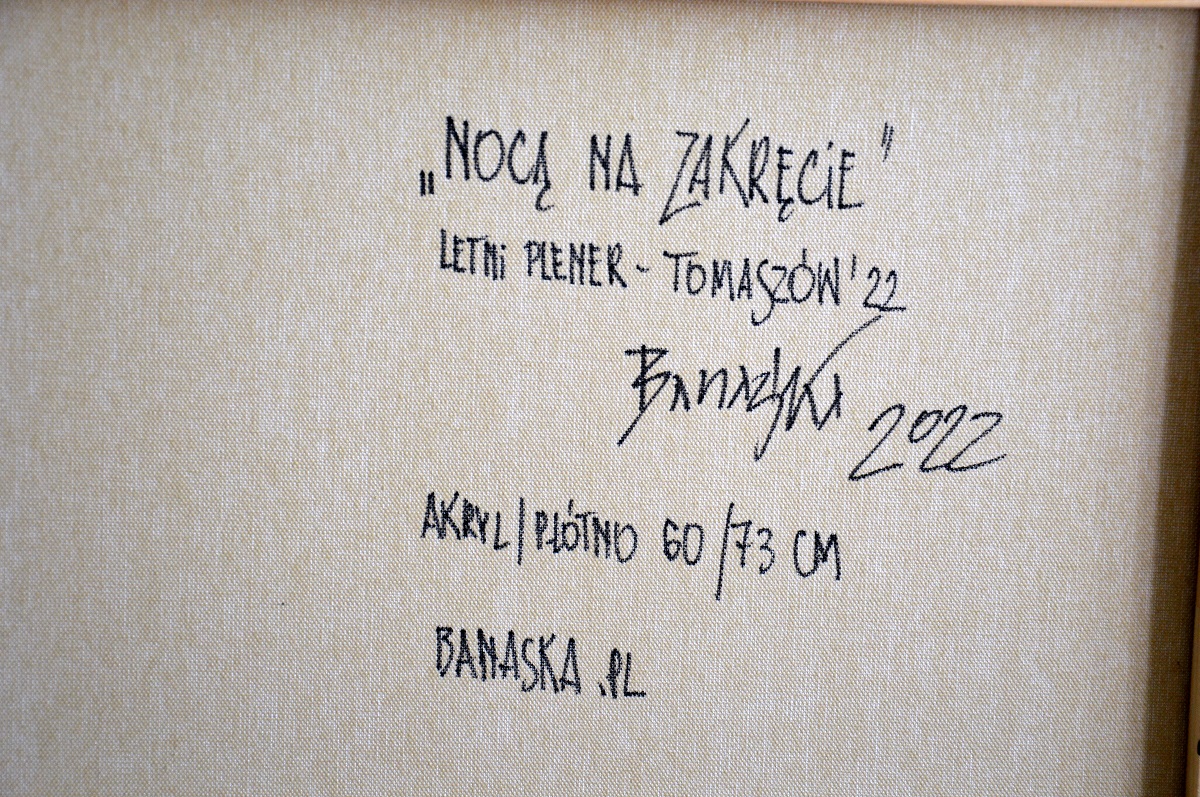 „NOCĄ NA ZAKRĘCIE"
LETNI PLENER - TOMASZÓW '22
Banaska 2022
AKRYL/PŁÓTNO 60/73 CM
BANASKA.PL